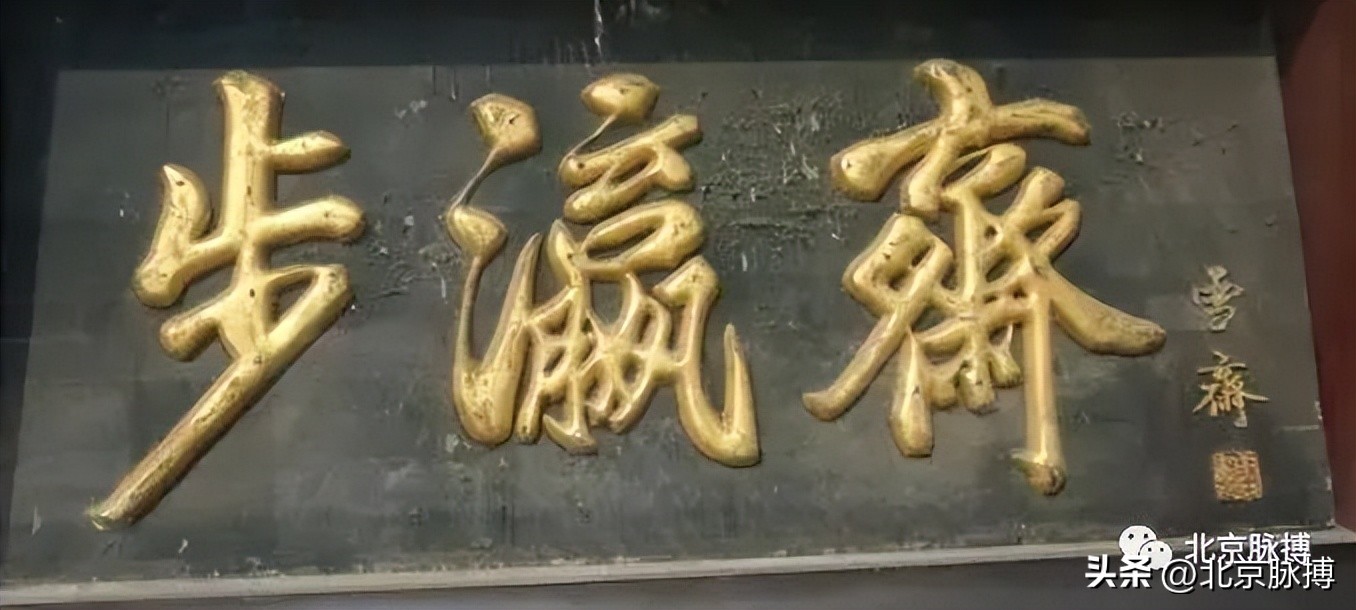 步瀛齋
雪齋
北京脉搏
头条 @北京脉搏